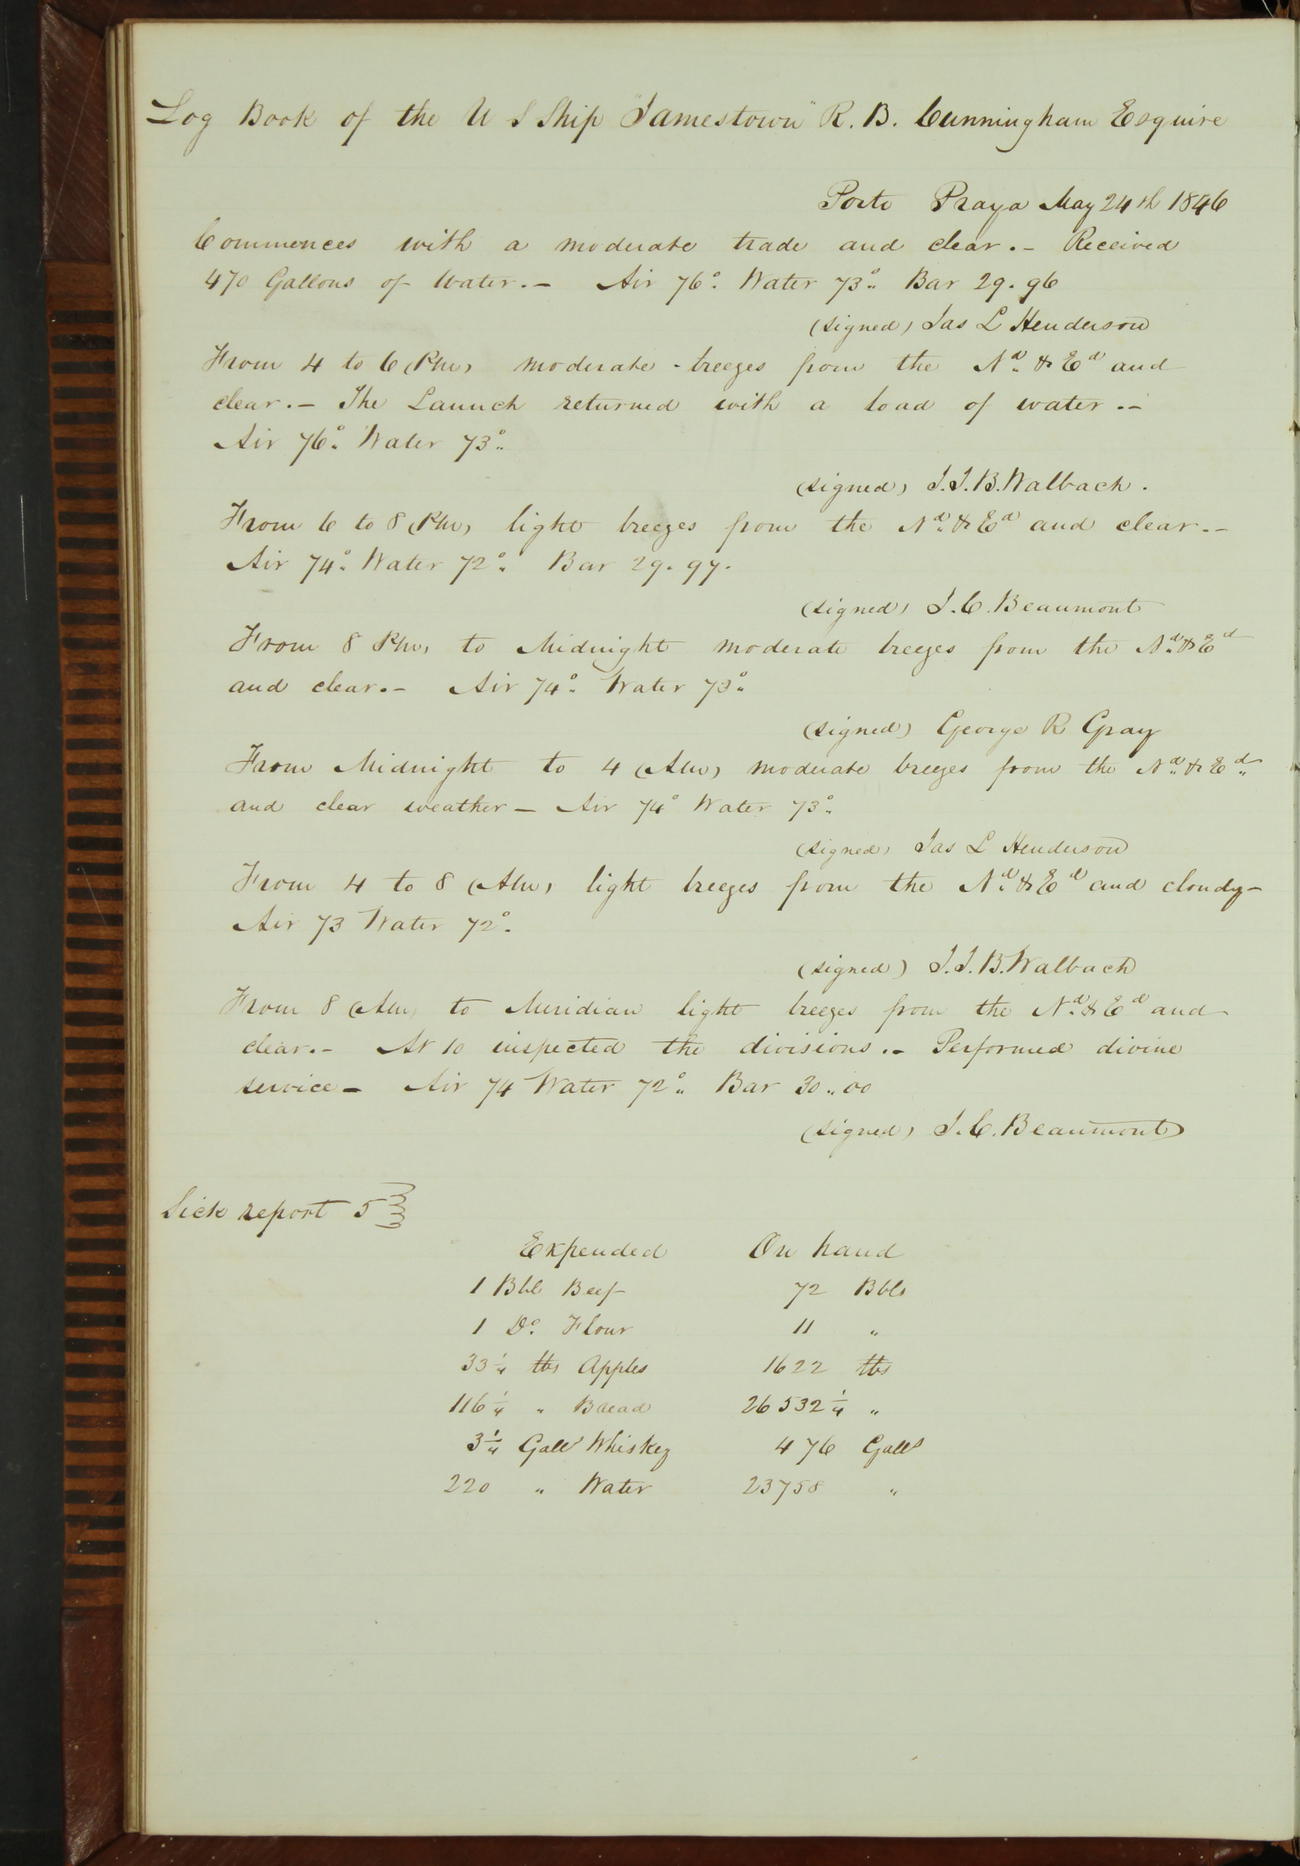 Log Book of the U S Ship "Jamestown" R. B. Cunningham Esquire
Porto Praya May 24th 1846
Commences with a moderate trade and clear.– Received
470 Gallons of Water.– Air 76°. Water 73°.. Bar 29.96
(signed) Jas L Henderson
From 4 to 6 (Pm) moderate breezes from the Nd. & Ed and
clear.– The Launch returned with a load of water.–
Air 76°. Water 73°..
(signed) J.J.B. Walbach.
From 6 to 8 (Pm) light breezes from the Nd. & Ed and clear.–
Air 74°. Water 72°. Bar 29.97.
(signed) J.C. Beaumont
From 8 Pm, to Midnight moderate breezes from the Nd. & Ed
and clear.– Air 74°. Water 73°..
(signed) George R Gray
From Midnight to 4 (Am) moderate breezes from the Nd. & Ed..
and clear weather – Air 74° Water 73°..
(signed) Jas L Henderson
From 4 to 8 (Am) light breezes from the Nd. & Ed and cloudy –
Air 73 Water 72°.
(signed) J.J.B. Walbach
From 8 (Am) to Meridian light breezes from the Nd. & Ed and
clear.– At 10 inspected the divisions.– Performed divine
service – Air 74 Water 72°.. Bar 30..00
(signed) J.C. Beaumont
Sick report 5
Expended On hand
1 Bbl Beef 72 Bbls
1 Do. Flour 11 "
33 1/4 lbs Apples 1622 lbs
116 1/4 " Bread 26532 1/4 "
3 1/4 Galls Whiskey 476 Galls
220 " Water 23758 "